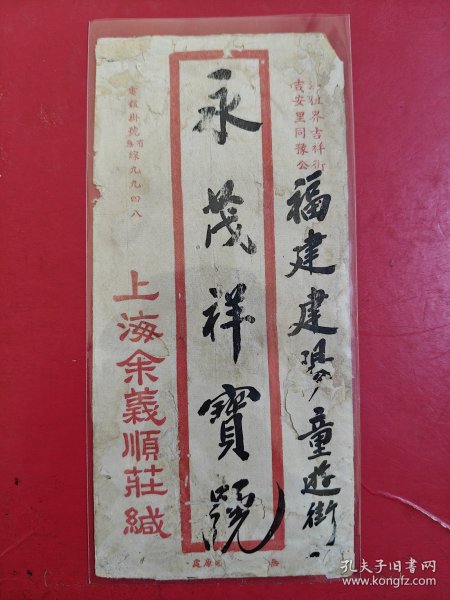 租界吉祥街
吉安里同豫公
福建建陽童遊街
永茂祥寶號
電報掛號有無線九九四八
上海余義順莊緘
孔夫子旧书网
www.kongfz.com